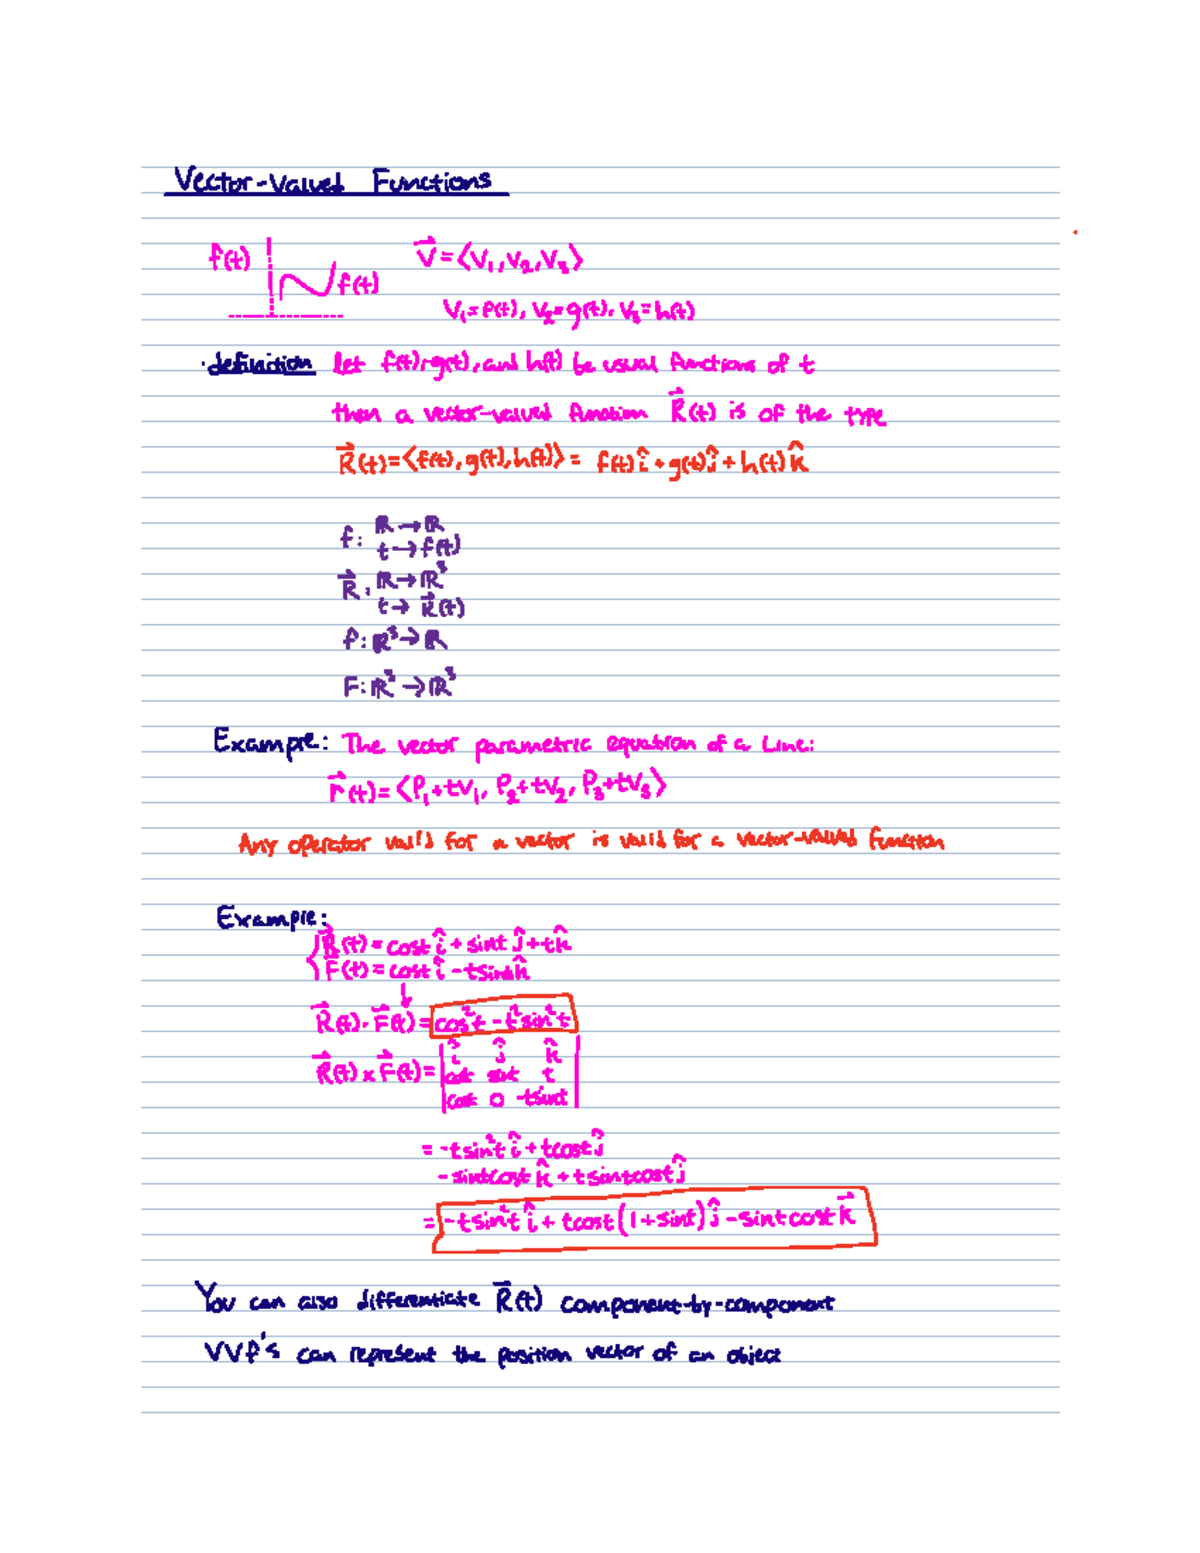 Vector-Valued Functions
f(t) f(t) V⃗ = ⟨V₁, V₂, V₃⟩
V₁ = f(t), V₂ = g(t), V₃ = h(t)
·definition let f(t), g(t), and h(t) be usual functions of t
then a vector-valued function R⃗(t) is of the type
R⃗(t) = ⟨f(t), g(t), h(t)⟩ = f(t)î + g(t)ĵ + h(t)k̂
f: ℝ → ℝ
t → f(t)
R⃗: ℝ → ℝ³
t → R⃗(t)
f: ℝ³ → ℝ
F: ℝ³ → ℝ³
Example: The vector parametric equation of a Line:
r⃗(t) = ⟨P₁+tV₁, P₂+tV₂, P₃+tV₃⟩
Any operator valid for a vector is valid for a vector-valued function
Example:
R⃗(t) = cost î + sint ĵ + t k̂
F⃗(t) = cost î - tsint k̂
R⃗(t) · F⃗(t) = cos²t - t²sin²t
R⃗(t) x F⃗(t) = | î ĵ k̂ |
| cost sint t |
| cost 0 -tsint |
= -tsin²t î + tcost ĵ
- sintcost k̂ + tsintcost ĵ
= -tsin²t î + tcost(1+sint) ĵ - sintcost k⃗
You can also differentiate R⃗(t) component-by-component
VVF's can represent the position vector of an object